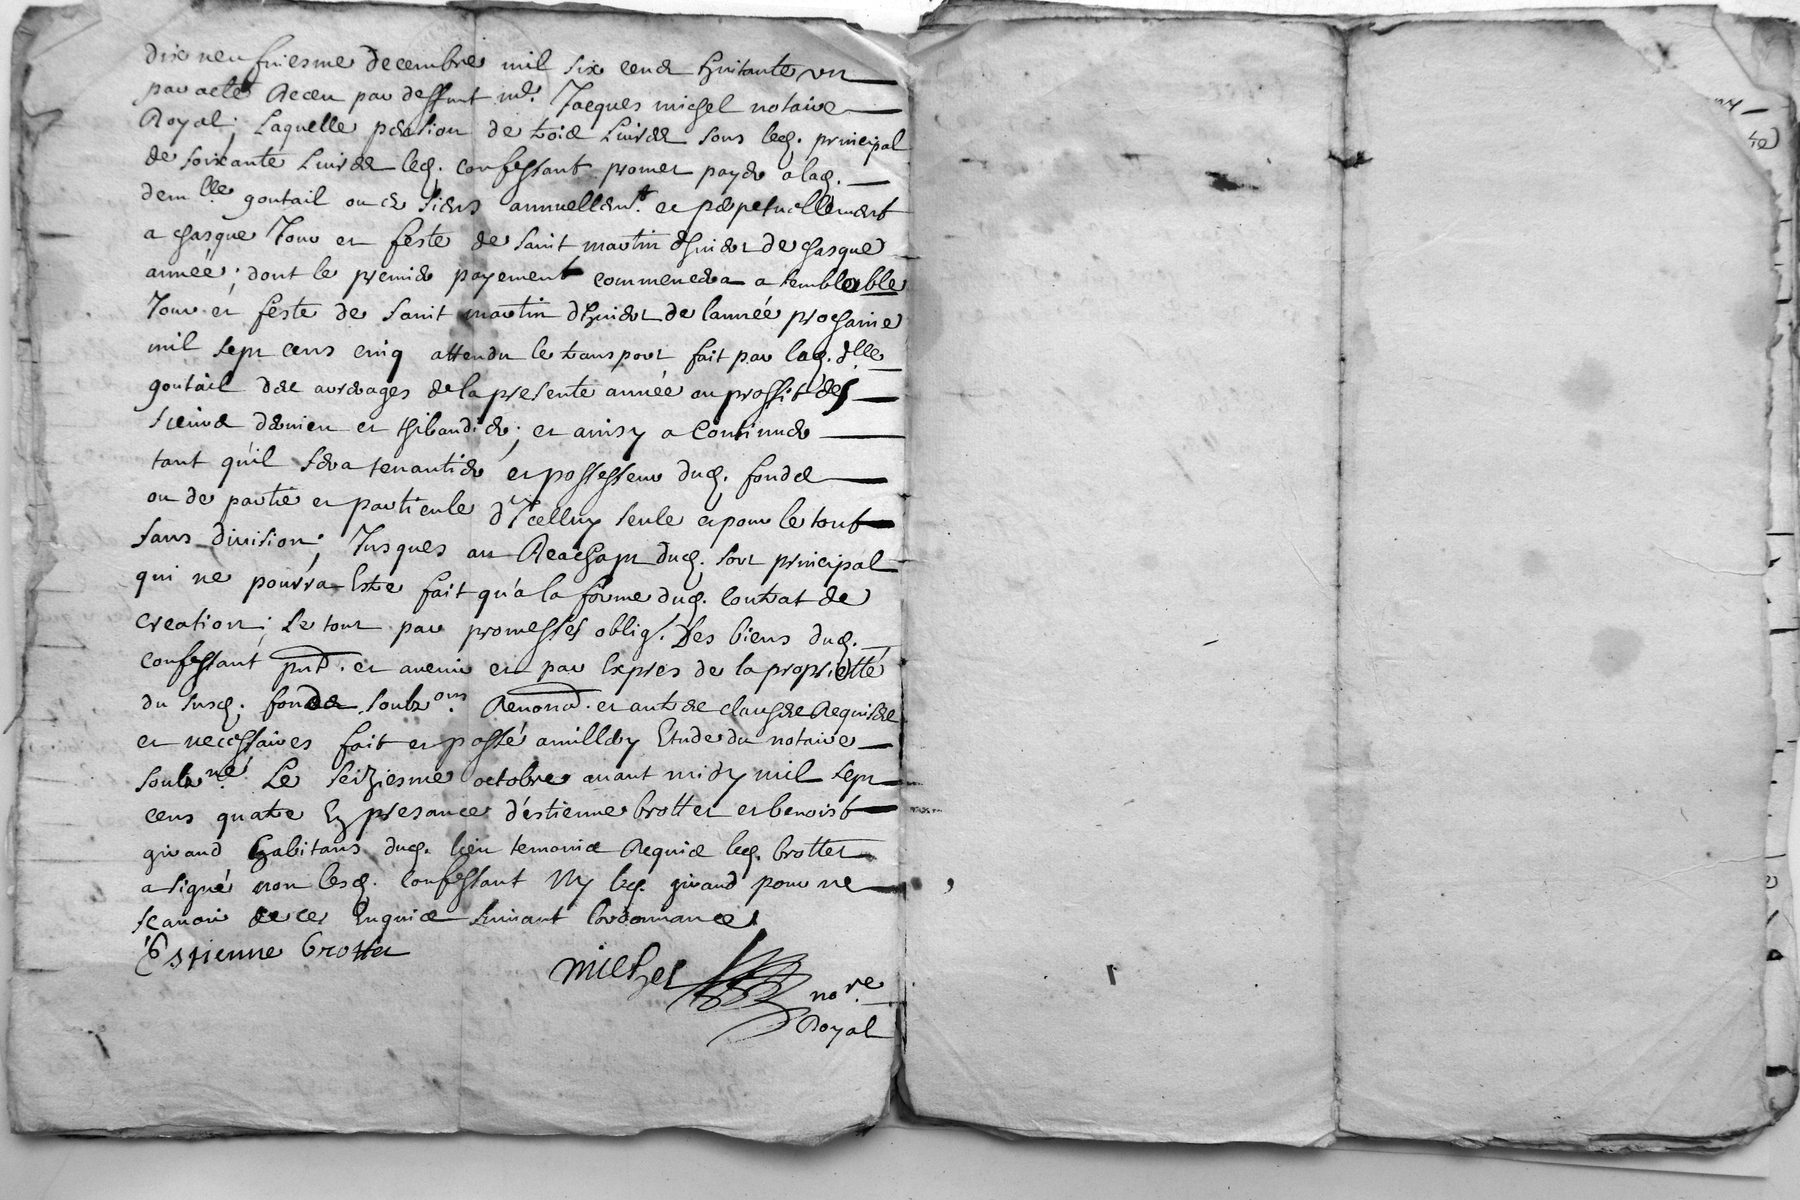 dix neufviesme decembre mil six cens huitante un
par acte Receu par deffunt me. Jacques michel notaire
Royal; Laquelle pension de trois Livres sous led. principal
de soixante Livres led. confessant promet payer a lad.
demlle. goutail ou es siens annuellemt. et perpetuellement
a chasque Jour et feste de saint martin d'hiver de chasque
année; dont le premier payement commencera a semblable
Jour et feste de saint martin d'hiver de l'année prochaine
mil sept cens cinq attendu le transport fait par lad. dlle
goutail des arrerages de la presente année au proffit des
sieurs et thibaudier; et ainsy a Continuer
tant qu'il sera tenantier et possesseur dud. fonds
ou de partie et particule d'Icelluy seule et pour le tout
sans division; Jusques au Reachapt dud. sort principal
qui ne pourra Estre fait qu'a la forme dud. contrat de
creation; Le tout par promesses oblig. Des biens dud.
confessant pnt. et avenir et par Expres de la proprietté
du susd. fonds soubz ons. Renond. et autres clauses Requises
et necessaires fait et passé a millery Etude du notaire
soubzné. Le seiziesme octobre avant midy mil sept
cens quatre En presance d'estienne brottet et benoist
giraud habitans dud. lieu temoins Requis led. brottet
a signé non lesd. Confessant Ny led. giraud pour ne
scavoir de ce Enquis suivant l'ordonnance.
Estienne brottet
michel nore.
Royal